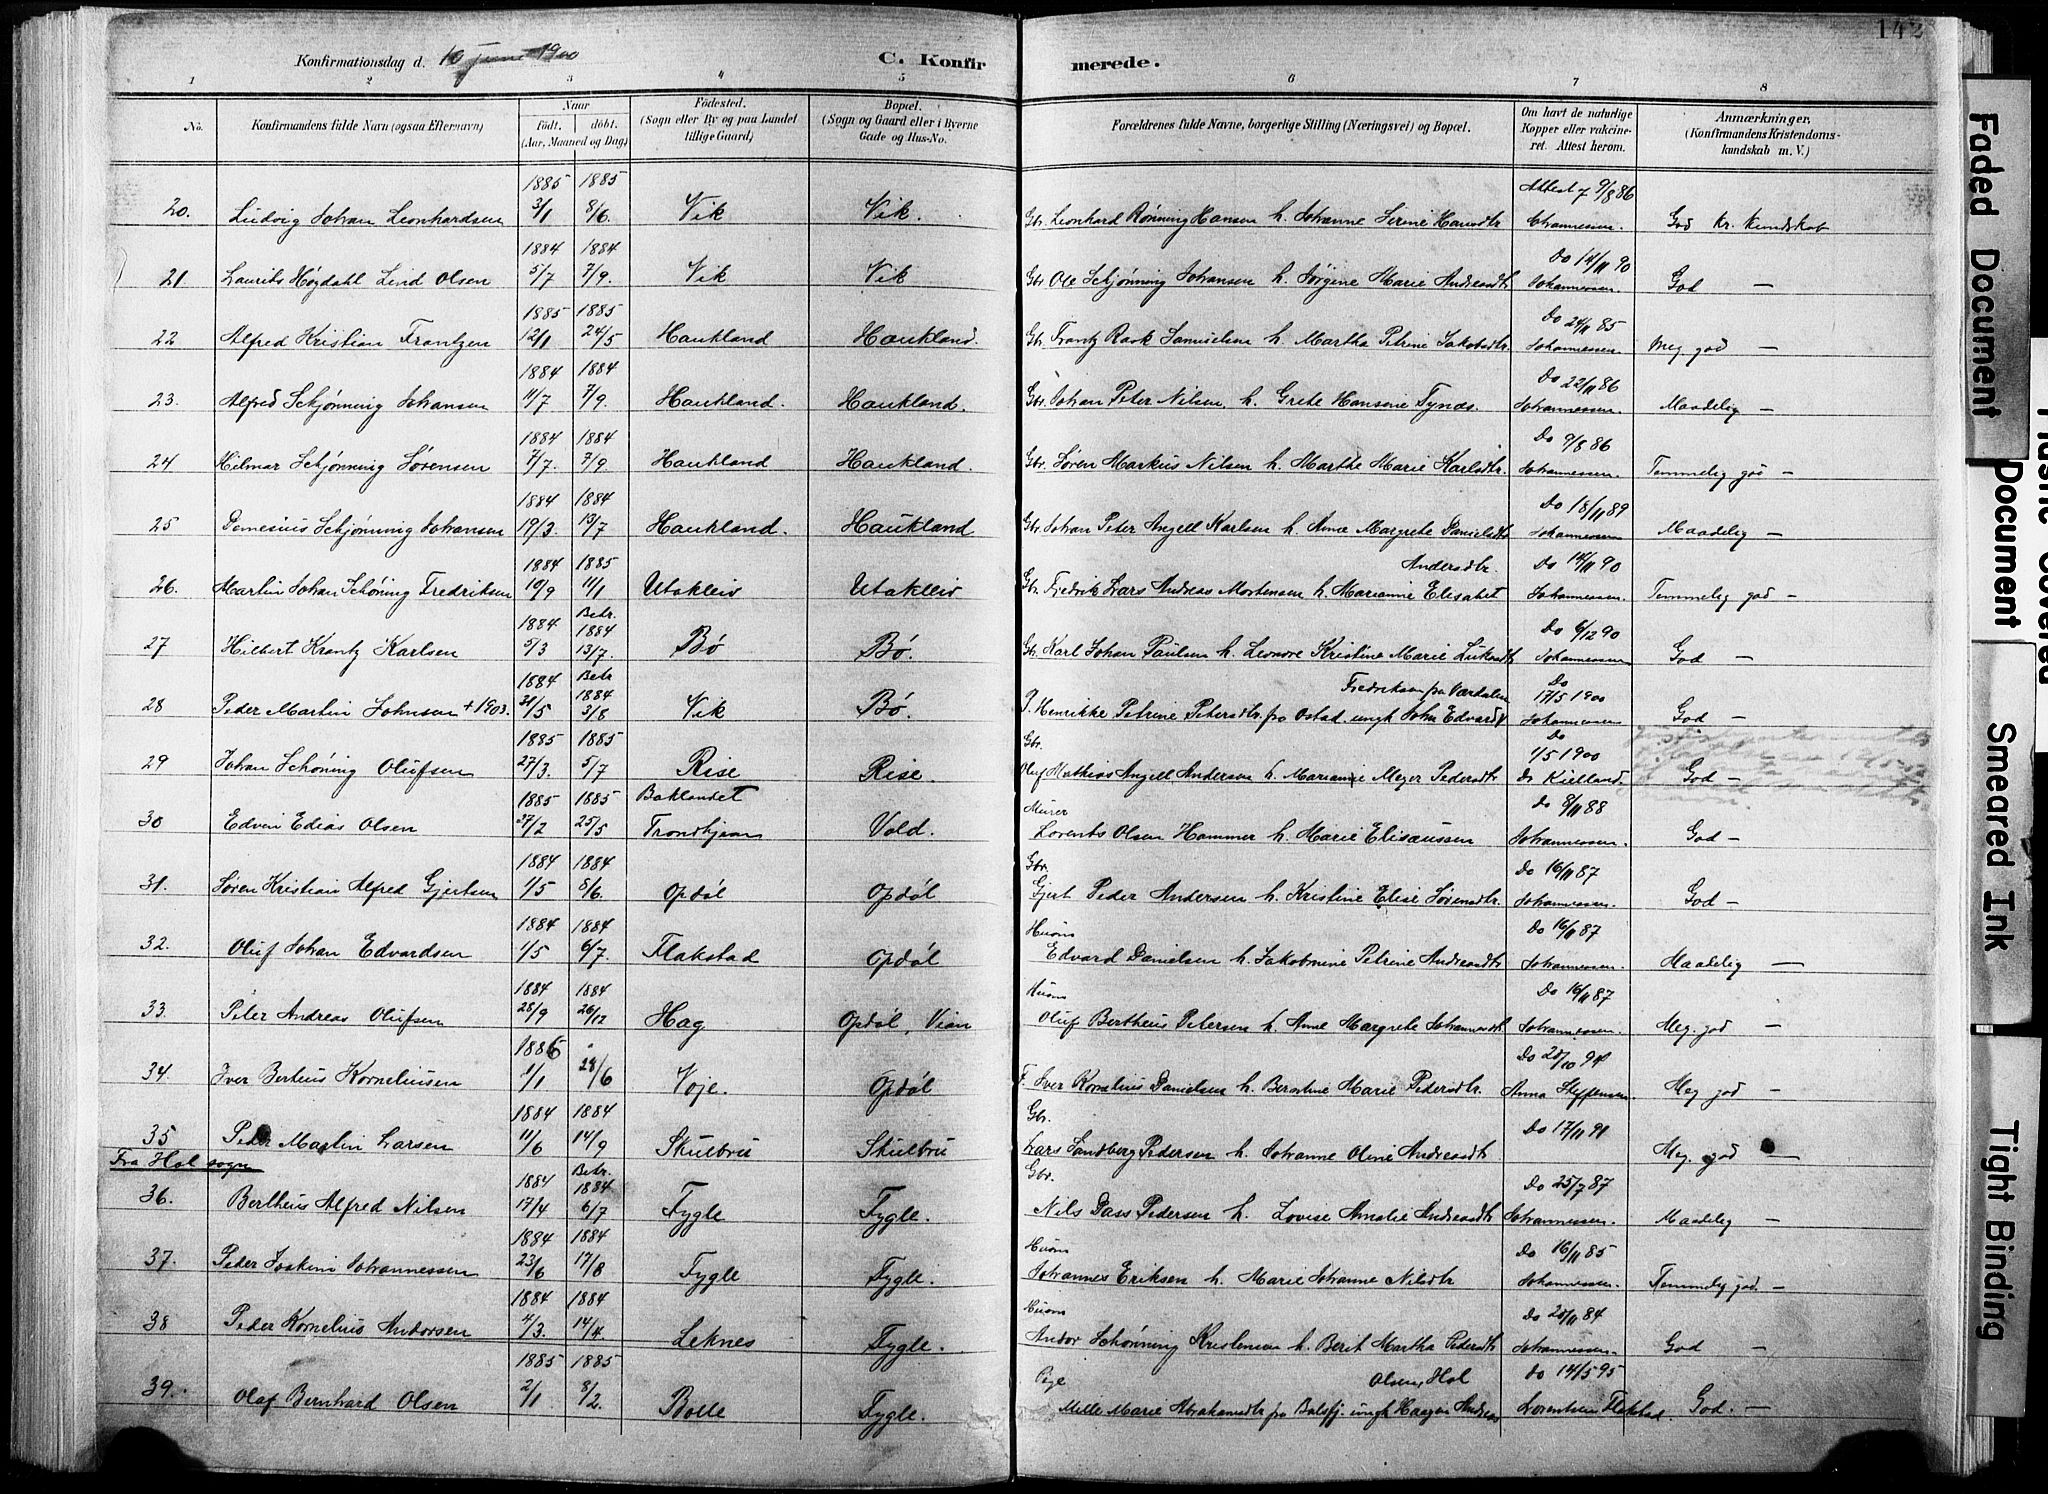 142
Konfirmationsdag d. 10 juni 1900 C. Konfirmerede.
1 2 3 4 5 6 7 8
No. Konfirmandens fulde Navn (ogsaa Efternavn) Naar Födt. döbt. (Aar, Maaned og Dag) Födested. (Sogn eller By og paa Landet tillige Gaard) Bopæl. (Sogn og Gaard eller i Byerne Gade og Hus-No. Forældrenes fulde Navne, borgerlige Stilling (Næringsvei) og Bopæl. Om havt de naturlige Kopper eller vakcineret. Attest herom. Anmærkninger. (Konfirmandens Kristendomskundskab m. V.)
1885 1885 Attest 9/8 86
20. Ludvig Johan Leonhardsen 3/1 8/6. Vik Vik. Gbr. Leonhard Rønning Hansen h. Johanne Serine Hansdtr Johannessen. God Kr. Kundskab
1884 1884 Do 14/11 90
21. Laurits Høgdahl Lind Olsen 5/7 7/9. Vik Vik Gbr Ole Schjønning Johansen h. Jørgine Marie Andreasdtr Johannessen God —
1885 1885 Do 24/11 85
22 Alfred Kristian Frantzen 12/1 24/5 Haukland Haukland. Gb. Frantz Rask Samuelsen h. Martha Petrine Jakobsdtr. Johannessen. Meg. god —
1884 1884 Do 22/11 86
23. Alfred Schjønning Johansen 11/7 7/9. Haukland. Haukland. Gbr. Johan Peter Nilsen h. Grete Hansine Tynds. Johannessen. Maadelig —
1884 1884 Do 9/8 86
24 Hilmar Schjønning Sørensen 7/7. 7/9 Haukland Haukland. Gbr. Søren Markus Nilsen h. Marthe Marie Karlsdtr. Johannessen. Temmelig god —
1884 1884 Do 18/11 89
25 Demesius Schjønning Johansen 19/3. 13/7 Haukland. Haukland Gbr. Johan Peter Angell Karlsen h. Anne Margrete Danielsdtr Johannessen Maadelig —
1884 1885 Andersdtr. Do 14/11 90
26. Martin Johan Schøning Fredriksen 10/9 11/1 Utakleiv Utakleiv Gb. Fredrik Lars Andreas Mortensen h. Marianne Elisabet Johannessen. Temmelig god —
1884 Betr. 1884 Do 6/12 90
27 Hilbert Krantz Karlsen 5/3 13/7. Bø Bø. Gb. Karl Johan Paulsen h. Leonore Kristine Marie Lukasdtr Johannessen God —
1884 Betr 1884 Fredriksen fra Værdalen Do 17/5 1900
28 Peder Martin Johnsen + 1903. 31/5 3/8 Vik Bø. P. Henrikke Petrine Petersdtr. fra Ostad. ungk John Edvard Johannessen God —
1885 1885 Gbr. Do 1/5 1900
29 Johan Schøning Olufsen 27/3. 5/7 Rise Rise. Oluf Mathias Angell Andersen h. Marianne Meyer Pedersdtr dr Kielland. God —
1885 1885 Baklandet Murer Do 8/11 88
30 Edvin Edias Olsen 27/2 25/5 Trondhjem Vold. Lorents Olsen Hammer h. Marie Elisæussen Johannessen. God —
1884 1884 Gbr. Do 16/11 87
31. Søren Kristian Alfred Gjertsen 1/5 8/6. Opdøl Opdøl Gjert Peder Andersen h. Kristine Elise Sørensdtr. Johannessen. God —
1884 1884 Husm Do 16/11 87
32. Oluf Johan Edvardsen 1/5 6/7. Flakstad Opdøl Edvard Danielsen h. Jakobmine Petrine Andreasdtr Johannessen. Maadelig —
1884 1884 Husm Do 16/11 87
33. Peter Andreas Olufsen 28/9 26/12 Hag Opdøl, Vian Oluf Bertheus Petersen h. Anne Margrete Johannesdtr Johannessen. Meg. god —
1886 Do
34. Iver Bertheus Korneliusen 1/1 28/6 Voje. Opdøl F. Iver Kornelius Danielsen h. Berntine Marie Pedersdtr. Anna Steffensen Meg. god —
1884 1884 Gbr. Do 17/11 91
35 Peder Martin Larsen 11/6 14/9 Skulbru Skulbru Lars Sandberg Pedersen h. Johanne Oline Andreasdtr Meg. god —
Fra Hol sogn
1884 Betr. 1884 Gbr. Do 25/7 87
36. Bertheus Alfred Nilsen 17/4 6/7 Fygle Fygle. Nils Dass Pedersen h. Lovise Amalie Andreasdtr Johannessen. Maadelig —
1884 1884 Husm Do 16/11 85
37. Peder Joakim Johannessen 23/6 17/8 Fygle Fygle. Johannes Eriksen h. Marie Johanne Nilsdtr Johannessen. Temmelig god. —
1884 1884 Husm Do 20/11 84
38 Peder Kornelius Andorsen 4/3. 14/4. Leknes Fygle. Andor Schønning Kristensen h. Berit Martha Pedersdtr Johannessen. God —
1885 1885 Pige Olsen, Hol Do 14/5 95
39. Olaf Bernhard Olsen 2/1 8/2. Bolle Fygle. Mille Marie Abrahamsdtr fra Balsfj. ungk Haagen Andreas Lorentsen Flakstad. God. —
Faded Document
Document
Smeared Ink
Tight Binding